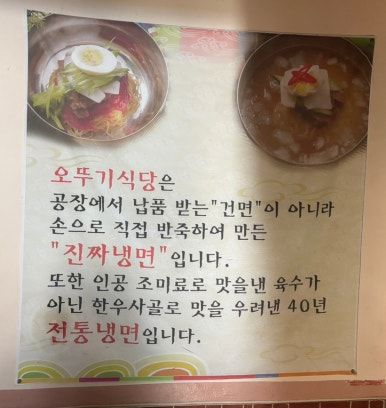 오뚜기식당은
공장에서 납품 받는"건면"이 아니라
손으로 직접 반죽하여 만든
"진짜냉면"입니다.
또한 인공 조미료로 맛을낸 육수가
아닌 한우사골로 맛을 우려낸 40년
전통냉면입니다.